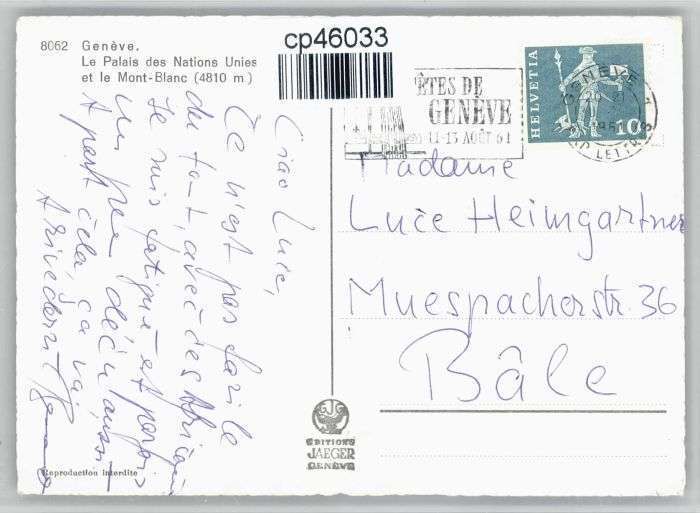 8062 Genève.
Le Palais des Nations Unies
et le Mont-Blanc (4810 m.)
cp46033
ÊTES DE
GENÈVE
11-13 AOÛT 61
HELVETIA
10
GENÈVE
Ciao Luce,
Ce n'est pas facile
du tout, avec des Africains
Je suis fatigué et parfois
un peu déçu aussi –
A part cela, ça va.
Arivederci
Madame
Luce Heimgartner
Muespacherstr. 36
Bâle
EDITIONS
JAEGER
GENÈVE
Reproduction Interdite